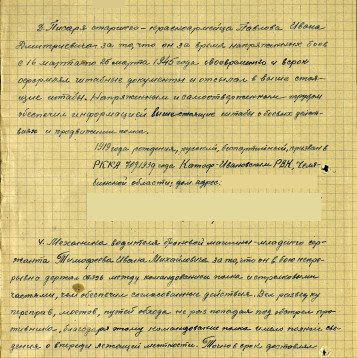 3. Писаря старшего – красноармейца Павлова Ивана
Дмитриевича за то, что он за время напряженных боев
с 16 марта по 26 марта 1945 года своевременно и в срок
оформлял штабные документы и отсылал в выше стоя-
щие штабы. Напряженным и самоотверженным трудом
обеспечил информацией вышестоящие штабы о боевых дейст-
виях и продвижении полка.
1919 года рождения, русский, беспартийный, призван в
РККА 1939 года Катав-Ивановским РВК, Челя-
бинской области; дом. адрес:
4. Механика водителя броневой машины – младшего сер-
жанта Тимофеева Ивана Михайловича за то, что он в бою непре-
рывно держал связь между командованием полка и стрелковыми
частями, чем обеспечил согласованные действия. Вел разведку
переправ, мостов, путей обхода не раз попадая под обстрел про-
тивника, благодаря этому командование полка имело полные све-
дения о впереди лежащей местности. Точно в срок доставлял